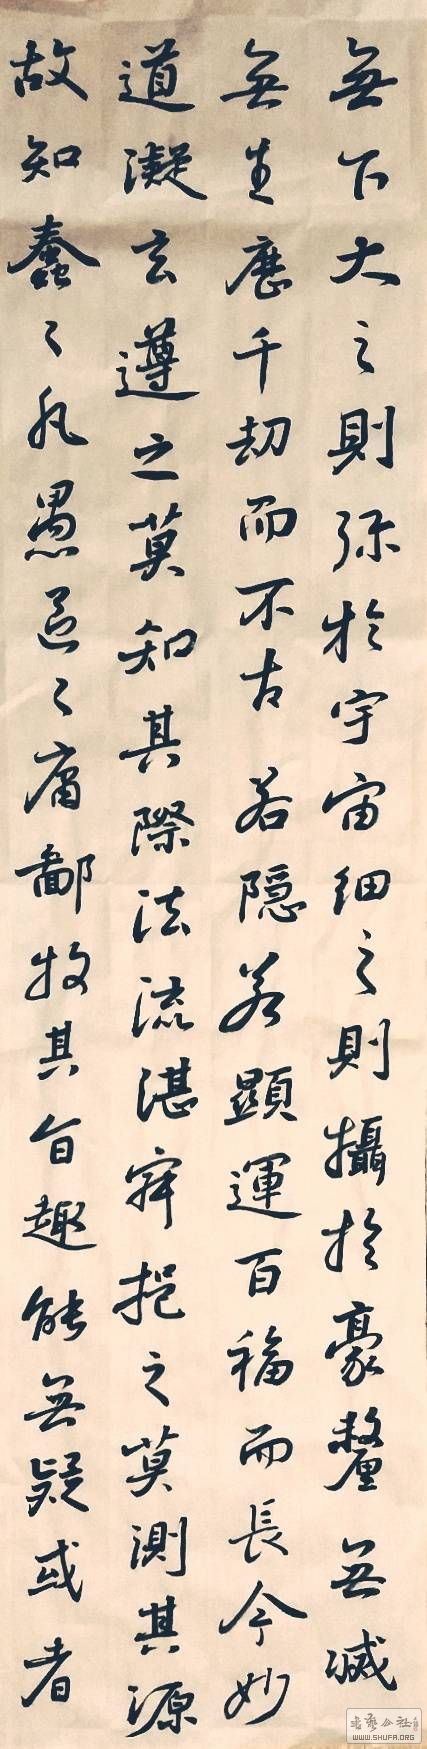 無下大之則弥於宇宙細之則攝於豪釐無滅
無生歷千劫而不古若隱若顯運百福而長今妙
道凝玄遵之莫知其際法流湛寂挹之莫測其源
故知蠢々凡愚區々庸鄙投其旨趣能無疑或者
书艺公社
WWW.SHUFA.ORG